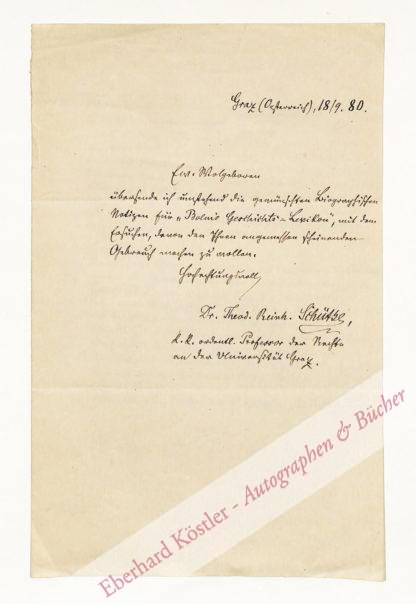 Graz (Oesterreich), 18/9. 80.
Ew. Wolgeboren
übersende ich umstehend die gewünschten biographischen
Notizen für „Bolms Geschichts-Lexikon“, mit dem
Ersuchen, davon den Ihnen angemessen scheinenden
Gebrauch machen zu wollen.
Hochachtungsvoll
Dr. Theod. Reinh. Schütze,
k. k. ordentl. Professor der Rechte
an der Universität Graz.
Eberhard Köstler - Autographen & Bücher